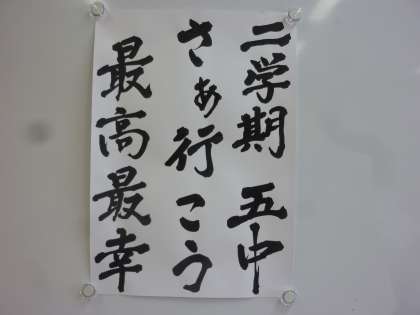 二学期 五中
さぁ行こう
最高最幸